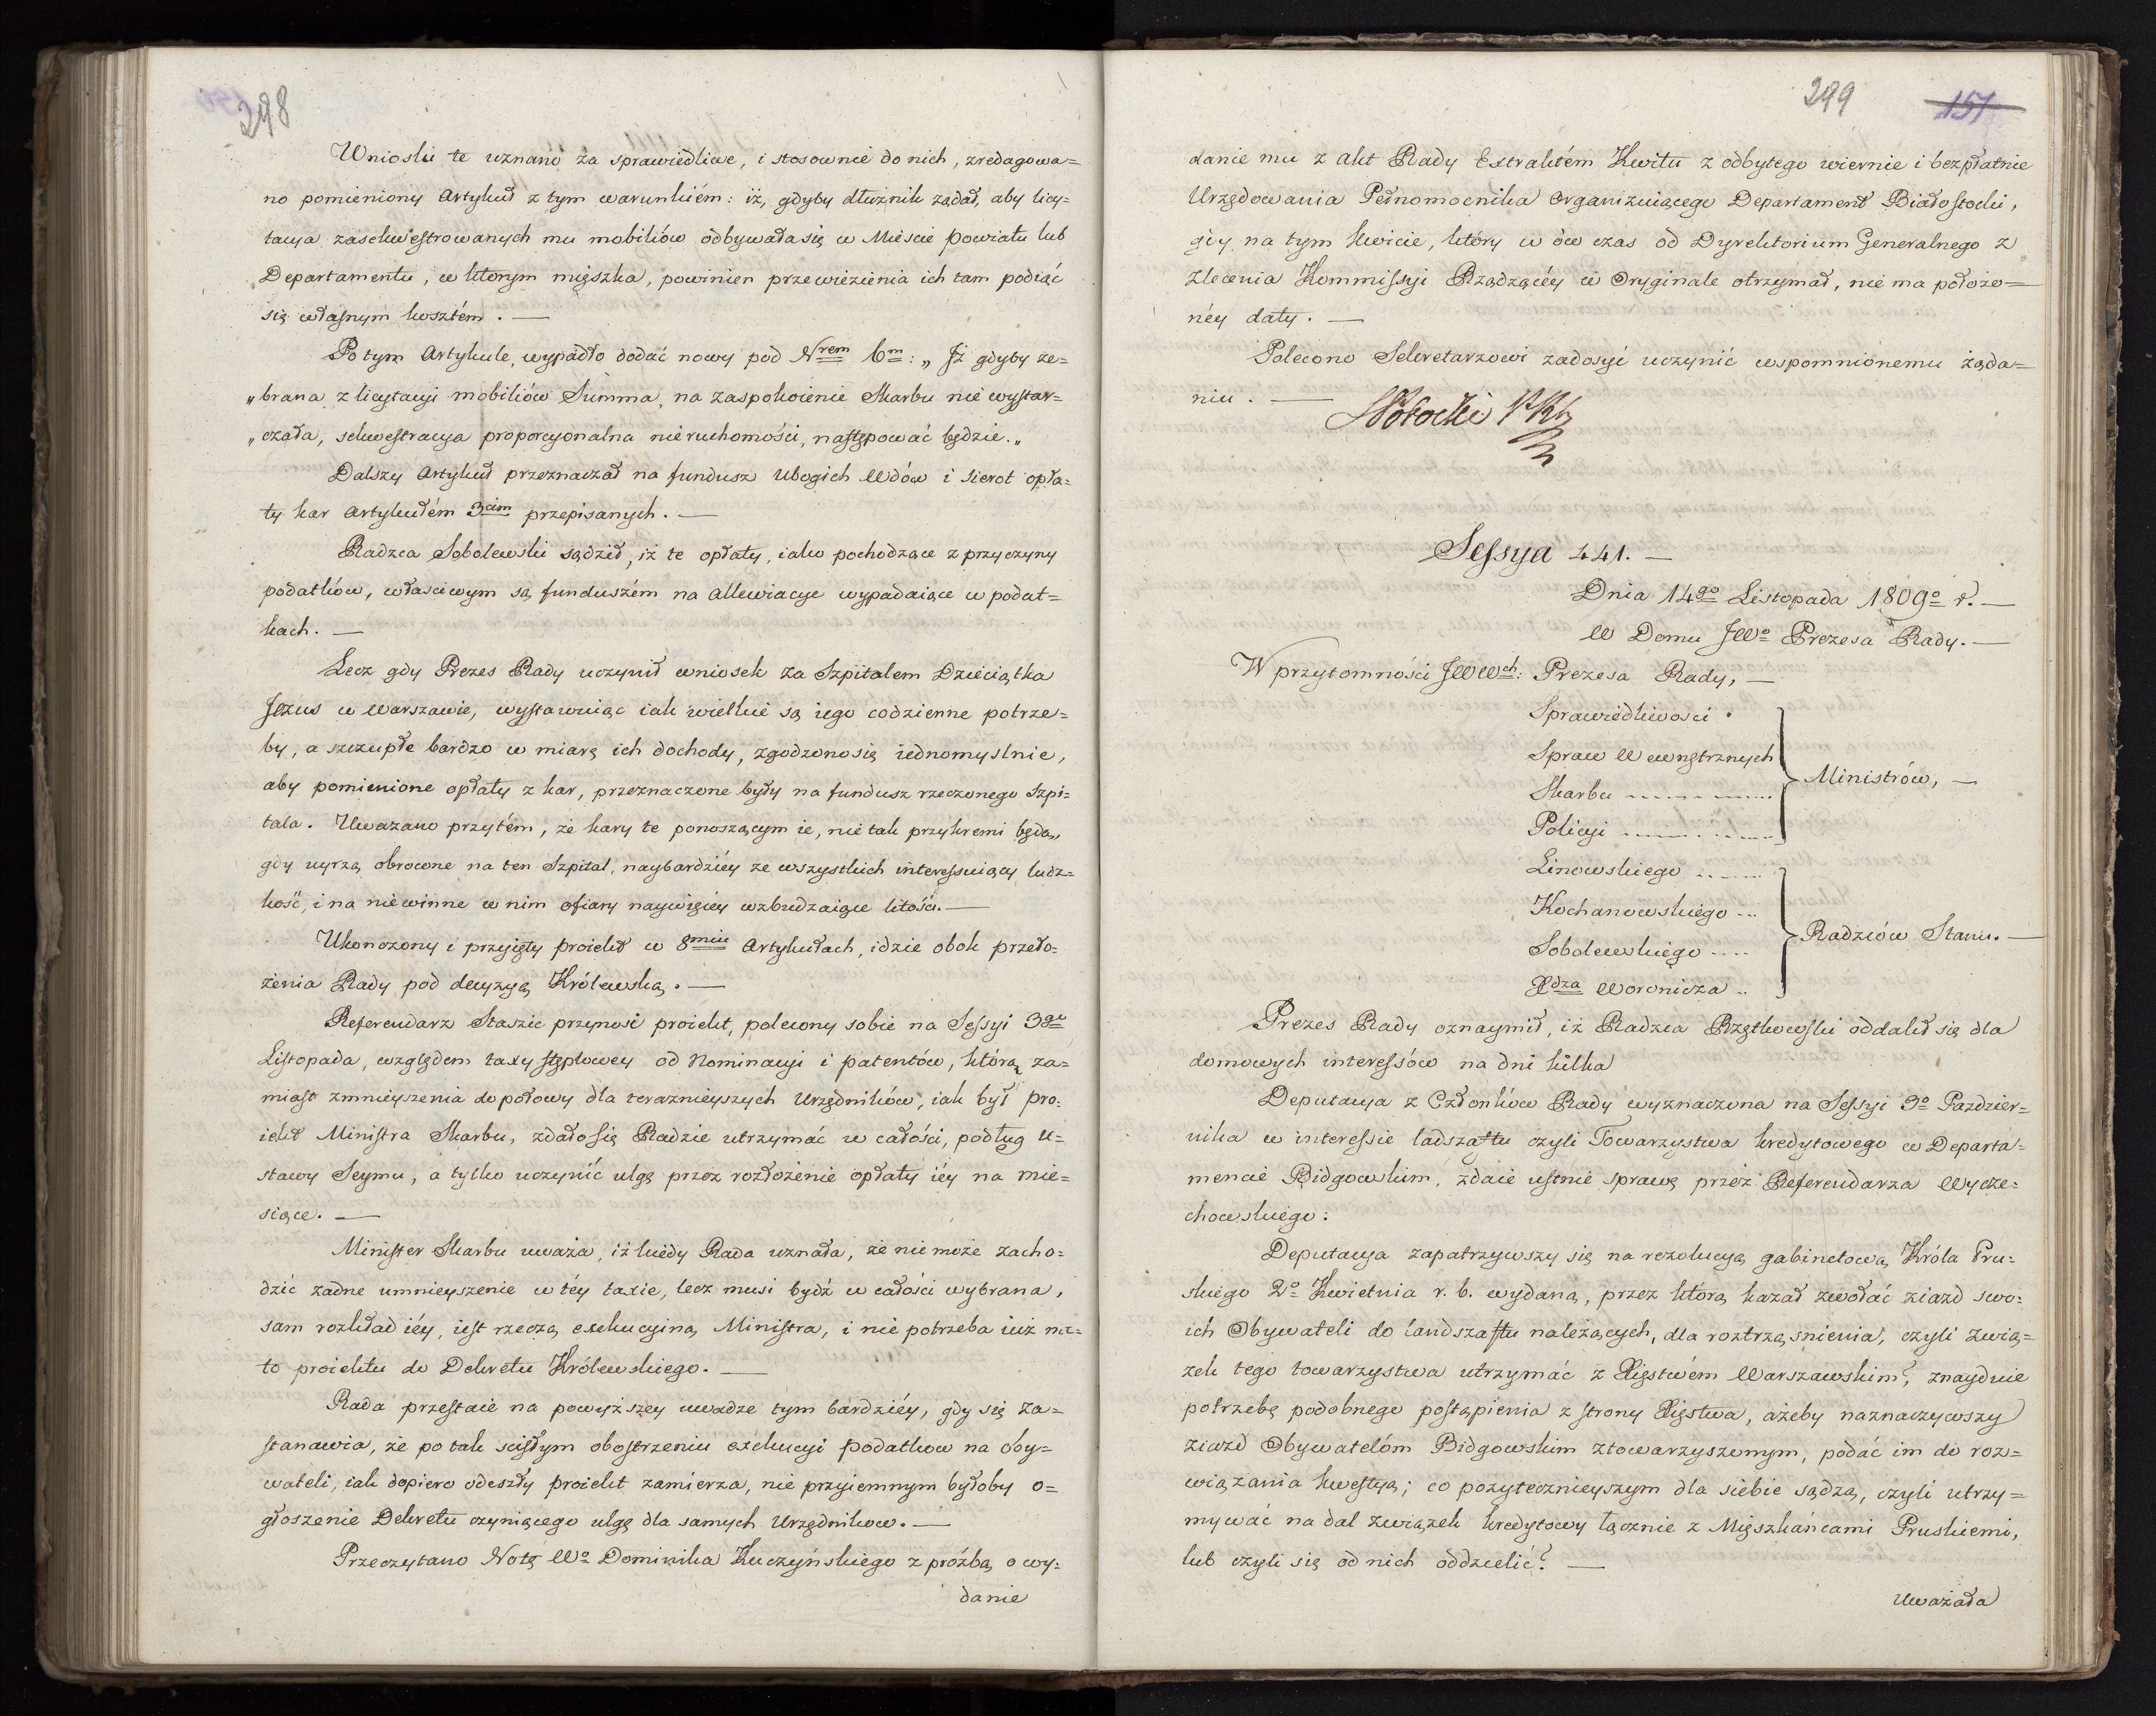 298
Wnioski te uznano za sprawiedliwe, i stosownie do nich, zredagowa=
no pomieniony Artykuł z tym warunkiém: iż, gdyby dłużnik żądał, aby licy=
tacya zasekwestrowanych mu mobiliów odbywała się w Mieście powiatu lub
Departamentu, w którym mięszka, powinien przewiezienia ich tam podiąć
się własnym kosztém. —
Po tym Artykule, wypadło dodać nowy pod Nrem 6m: „Iż gdyby ze=
„brana z licytacyi mobiliów Summa, na zaspokoienie Skarbu nie wystar=
„czała, sekwestracya proporcyonalna nieruchomości, następować będzie.„
Dalszy Artykuł przeznaczał na fundusz Ubogich Wdów i Sierot opła=
ty kar Artykułém 3cim przepisanych. —
Radzca Sobolewski sądził, iż te opłaty, iako pochodzące z przyczyny
podatków, właściwym są funduszém na allewiacye wypadaiące w podat=
kach. —
Lecz gdy Prezes Rady uczynił wniosek za Szpitalem Dzieciątka
Jezus w Warszawie, wystawuiąc iak wielkie są iego codzienne potrze=
by, a szczupłe bardzo w miarę ich dochody, zgodzono się iednomyslnie,
aby pomienione opłaty z kar, przeznaczone były na fundusz rzeczonego Szpi=
tala. Uważano przytém, że kary te ponoszącym ie, nie tak przykremi będą,
gdy uyrzą obrocone na ten Szpital, naybardziéy ze wszystkich interessuiący ludz=
kość, i na niewinne w nim ofiary naywięcey wzbudzaiące litości. —
Ukończony i przyięty proiekt w 8miu Artykułach, idzie obok przeło=
żenia Rady pod decyzyą Królewską. —
Referendarz Staszic przynosi proiekt, polecony sobie na Sessyi 3go
Listopada, względem taxy stęplowey od Nominacyi i patentów, którą za=
miast zmnieyszenia do połowy dla teraznieyszych Urzędników, iak był pro=
iekt Ministra Skarbu, zdało się Radzie utrzymać w całości, podług u=
stawy Seymu, a tylko uczynić ulgę przez rozłożenie opłaty iéy na mie=
siące. —
Minister Skarbu uważa, iż kiedy Rada uznała, że nie może zacho=
dzić żadne umnieyszenie w téy taxie, lecz musi bydź w całości wybrana,
sam rozkład iéy, iest rzeczą exekucyiną Ministra, i nie potrzeba iuż na=
to proiektu do Dekretu Królewskiego. —
Rada przestaie na powyższey uwadze tym bardziéy, gdy się za=
stanawia, że po tak scisłym obostrzeniu exekucyi podatkow na oby=
wateli, iak dopiero odeszły proiekt zamierza, nie przyiemnym byłoby o=
głoszenie Dekretu czyniącego ulgę dla samych Urzędnikow. —
Przeczytano Notę Wo Dominika Kuczyńskiego z proźbą o wy=
danie
299
151
danie mu z akt Rady Extraktém Kwitu z odbytego wiernie i bezpłatnie
Urzędowania Pełnomocnika organizuiącego Departament Białostocki,
gdy na tym kwicie, który w ów czas od Dyrektorium Generalnego z
zlecenia Kommissyi Rządzącéy w Oryginale otrzymał, nie ma położo=
néy daty. —
Polecono Sekretarzowi zadosyć uczynić wspomnionemu żąda=
niu. —
Sessya 441. —
Dnia 14go Listopada 1809o r. —
W Domu JWo Prezesa Rady. —
W przytomności JWWch: Prezesa Rady, —
Sprawiedliwości
Spraw Wewnętrznych
Skarbu
Policyi
Ministrów, —
Linowskiego
Kochanowskiego
Sobolewskiego
Xdza Woronicza
Radzców Stanu. —
Prezes Rady oznaymił, iż Radzca Rzętkowski oddalił się dla
domowych interessów na dni kilka
Deputacya z Członków Rady wyznaczona na Sessyi 9o Paździer=
nika w interessie ladszaftu czyli Towarzystwa kredytowego w Departa=
mencie Bidgowskim, zdaie ustnie sprawę przéz Referendarza Wycze=
chowskiego:
Deputacya zapatrzywszy się na rezolucyą gabinetową Króla Pru=
skiego 2o Kwietnia r. b. wydaną, przez którą kazał zwołać ziazd swo=
ich Obywateli do landszaftu należących, dla roztrząśnienia, czyli zwią=
zek tego towarzystwa utrzymać z Xięstwém Warszawskim?, znayduie
potrzebę podobnego postąpienia z strony Xięstwa, ażeby naznaczywszy
ziazd Obywatelóm Bidgowskim ztowarzyszonym, podać im do roz=
wiązania kwestyą; co pożytecznieyszym dla siebie sądzą, czyli utrzy=
mywać na dal związek kredytowy łącznie z Mięszkańcami Pruskiemi,
lub czyli się od nich oddzielić? —
Uważała